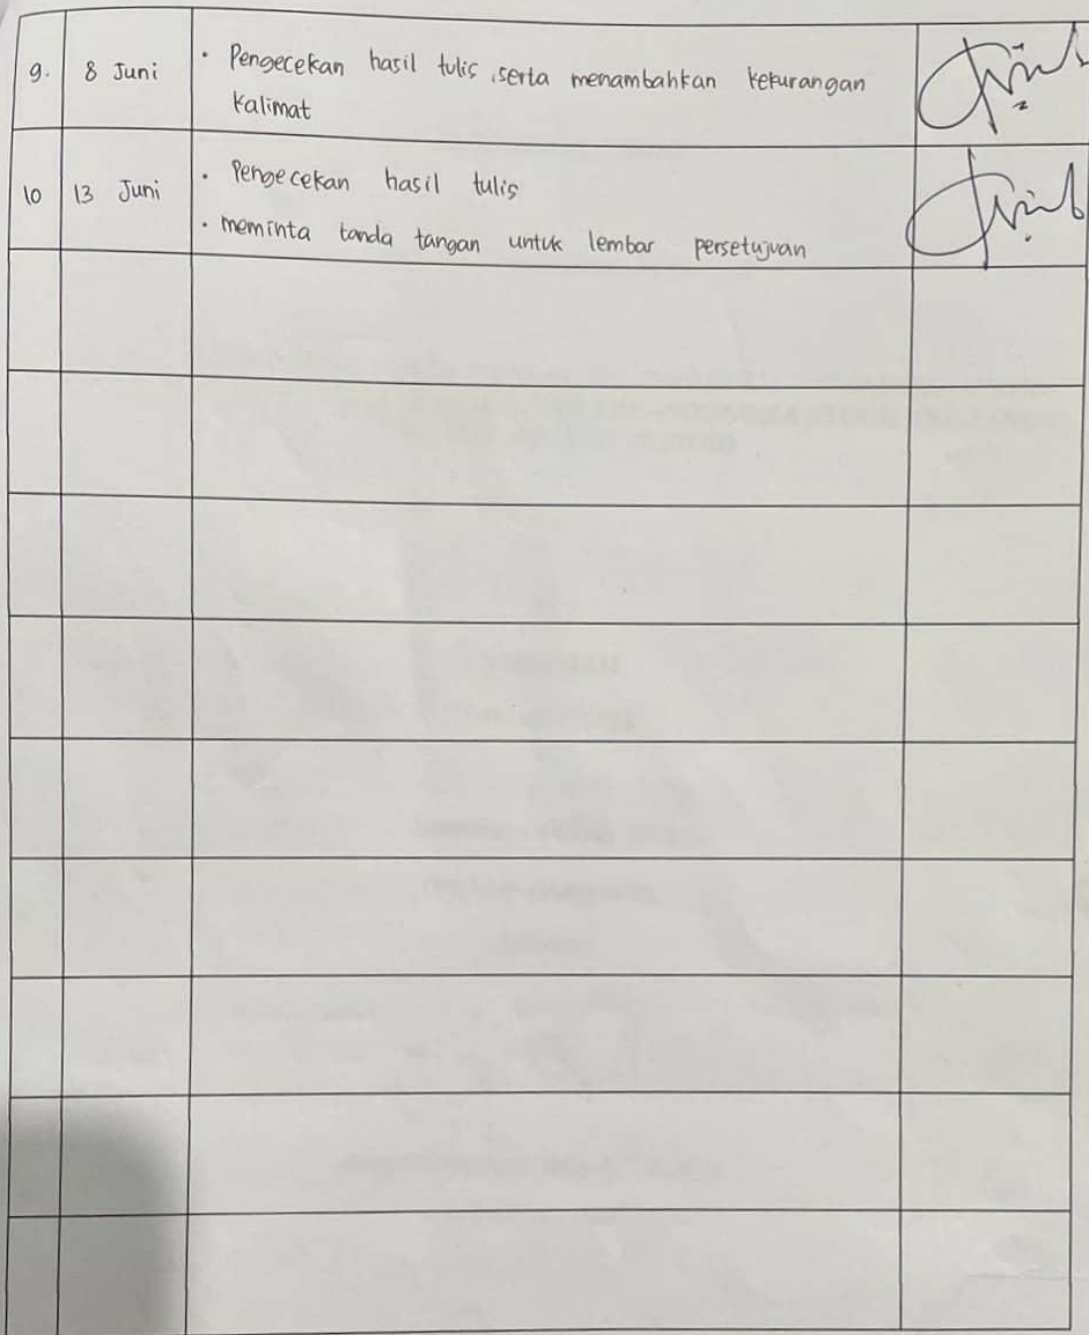 9. 8 Juni · Pengecekan hasil tulis, serta menambahkan kekurangan
kalimat
10 13 Juni · Pengecekan hasil tulis
· meminta tanda tangan untuk lembar persetujuan